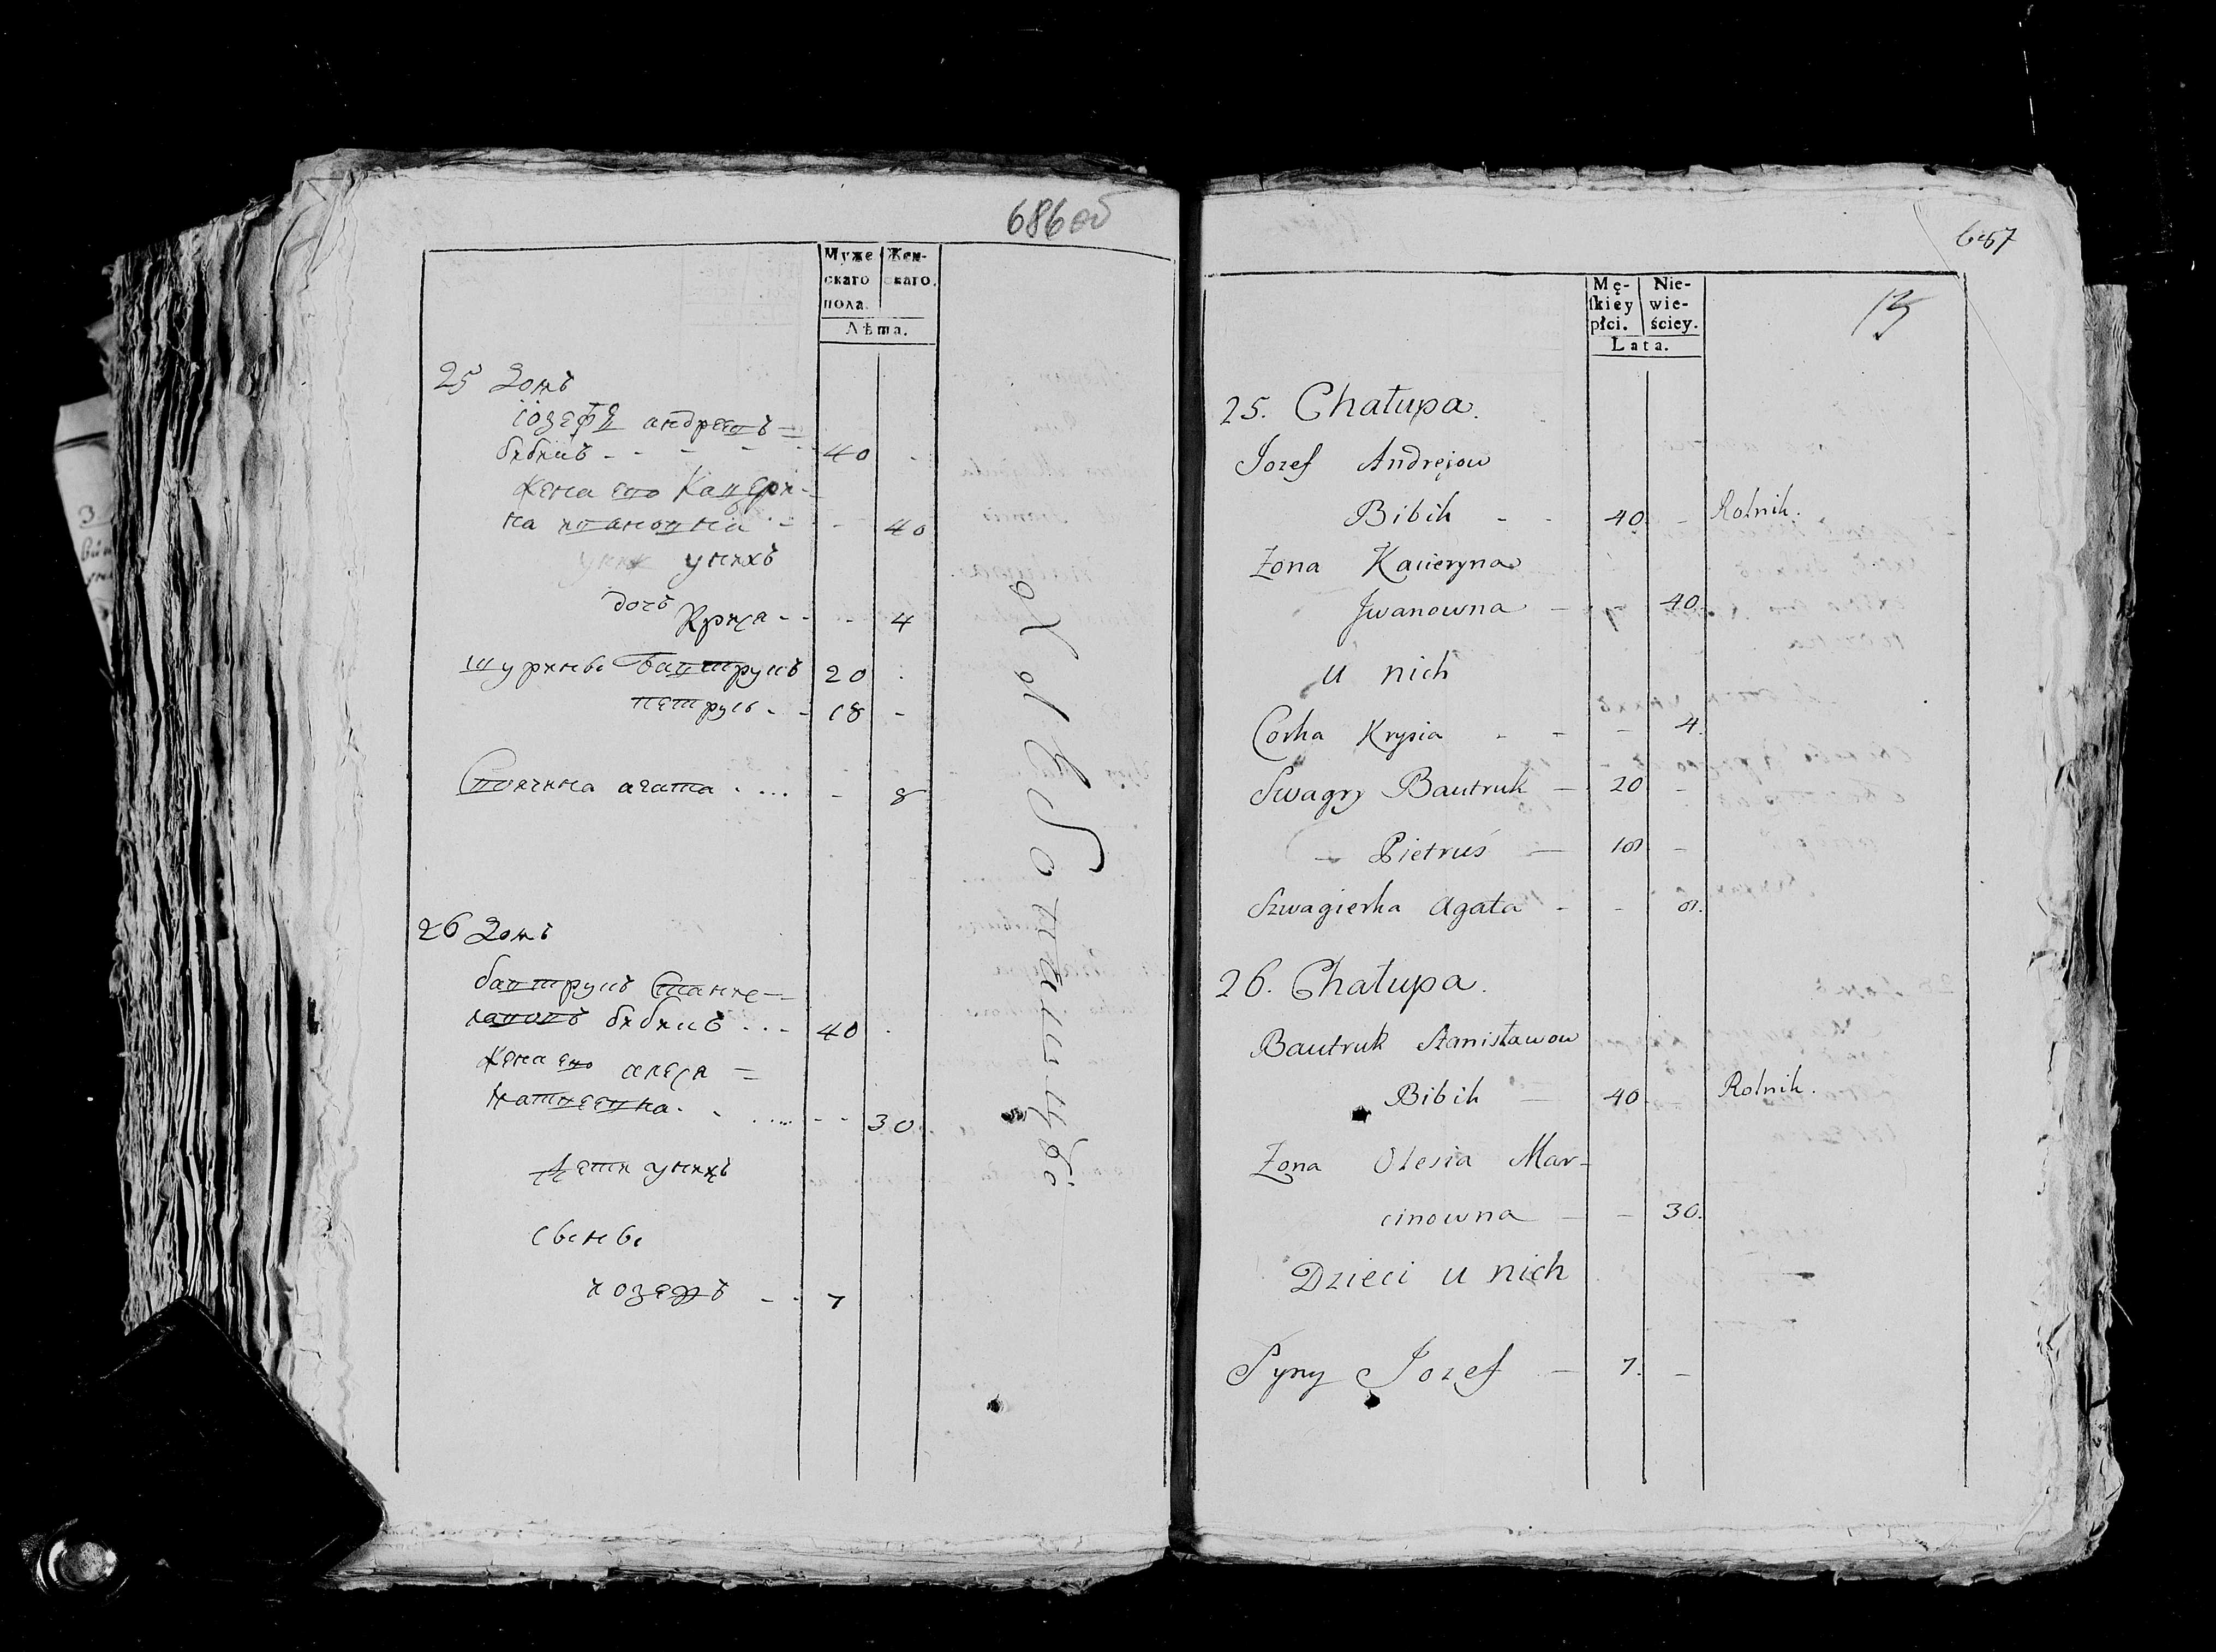 686об
Муже Жен-
скаго скаго.
пола.
Лѣта.
25 Домъ
іозефъ андреевъ =
бибикъ - - - - - 40 -
жена его Катери-
на ивановна - - - 40
унихъ
дочъ Крися - - - - 4
шурины Бавтрукъ 20 -
петрусь - - 18 -
Своячина агата . ... - 8
26 Домъ
бавтрукъ Стание-
лавовъ бибикъ ... - 40 -
жена его алеся =
Матвеевна - . .... - - 30
Дети унихъ
сыны
иозефъ - - 7
687
13
Mę- Nie-
ſkiey wie-
płci. ściey.
Lata.
25. Chałupa.
Jozef Andrejow
Bibik - - 40 - Rolnik.
Żona Kacieryna
Jwanowna - - 40.
u nich
Corka Krysia - - - 4.
Swagry Bautruk - 20 -
- Pietruś - 18 -
Szwagierka Agata - - 8.
26. Chałupa.
Bautruk Stanisławow
Bibik - 40 - Rolnik.
Żona Olesia Mar-
cinowna - - 30.
Dzieci u nich
Syny Jozef - 7. -